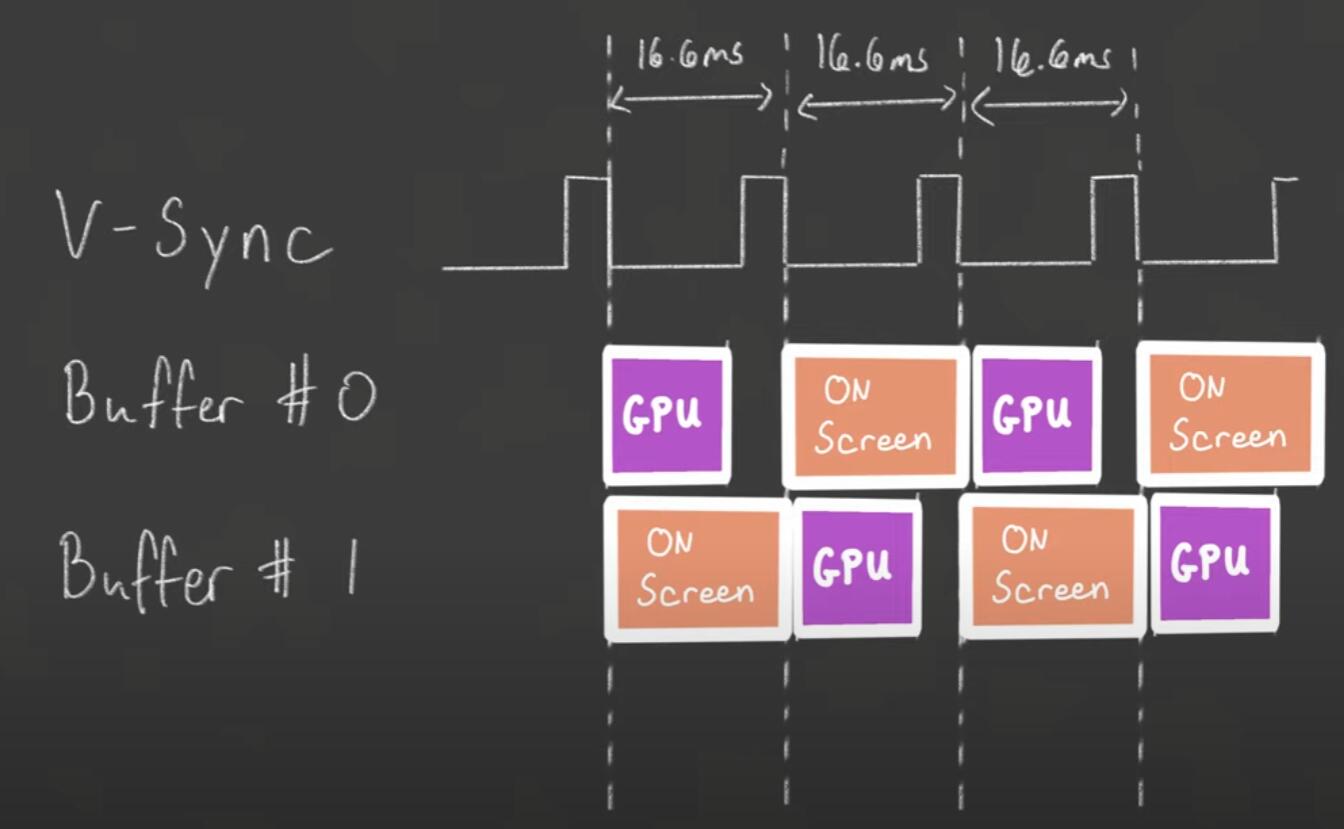 16.6ms 16.6ms 16.6ms
V-Sync
Buffer #0
GPU
ON
Screen
GPU
ON
Screen
Buffer # 1
ON
Screen
GPU
ON
Screen
GPU